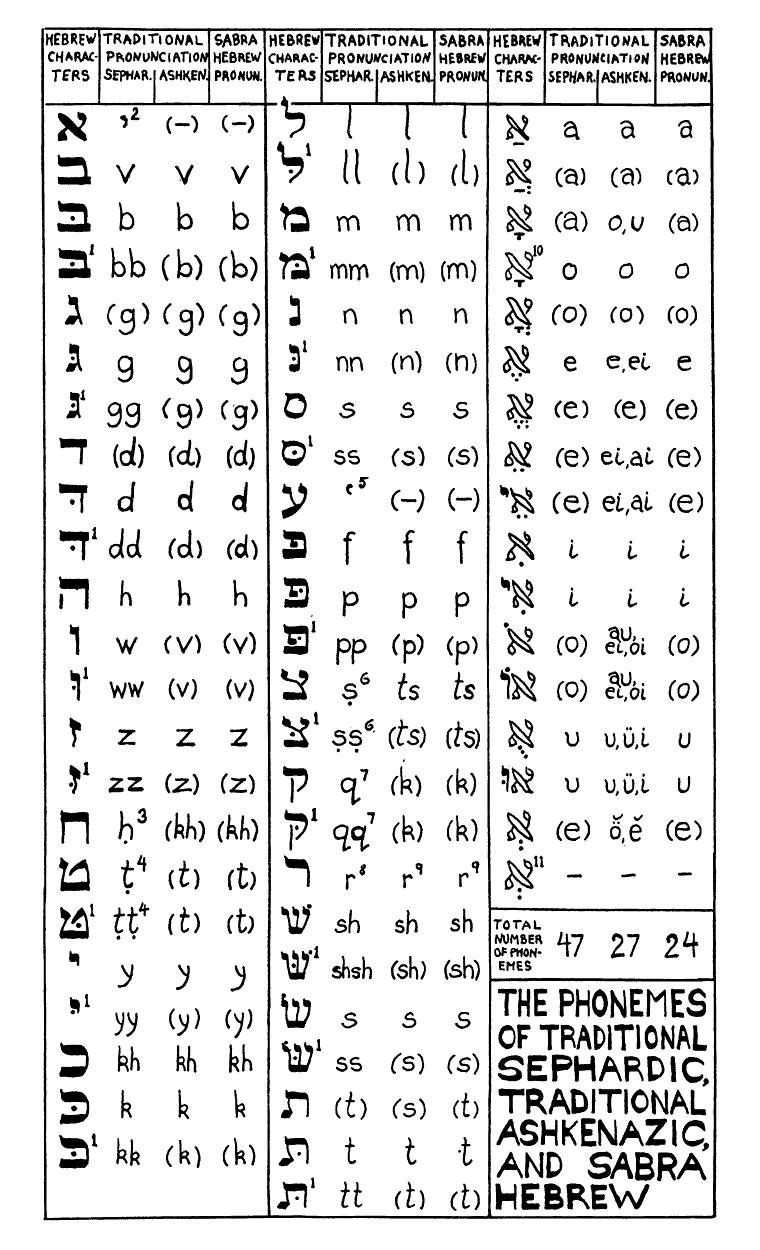 HEBREW CHARAC-TERS TRADITIONAL PRONUNCIATION SEPHAR. ASHKEN. SABRA HEBREW PRONUN.
א ʾ² (–) (–)
ב v v v
בּ b b b
בּ¹ bb (b) (b)
ג (g) (g) (g)
גּ g g g
גּ¹ gg (g) (g)
ד (d) (d) (d)
דּ d d d
דּ¹ dd (d) (d)
ה h h h
ו w (v) (v)
וּ¹ ww (v) (v)
ז z z z
זּ¹ zz (z) (z)
ח ḥ³ (kh) (kh)
ט ṭ⁴ (t) (t)
טּ¹ ṭṭ⁴ (t) (t)
י y y y
יּ¹ yy (y) (y)
כ kh kh kh
כּ k k k
כּ¹ kk (k) (k)
HEBREW CHARAC-TERS TRADITIONAL PRONUNCIATION SEPHAR. ASHKEN. SABRA HEBREW PRONUN.
ל l l l
לּ¹ ll (l) (l)
מ m m m
מּ¹ mm (m) (m)
נ n n n
נּ¹ nn (n) (n)
ס s s s
סּ¹ ss (s) (s)
ע ʿ⁵ (–) (–)
פ f f f
פּ p p p
פּ¹ pp (p) (p)
צ ṣ⁶ ts ts
צּ¹ ṣṣ⁶ (ts) (ts)
ק q⁷ (k) (k)
קּ¹ qq⁷ (k) (k)
ר r⁸ r⁹ r⁹
שׁ sh sh sh
שּׁ¹ shsh (sh) (sh)
שׂ s s s
שּׂ¹ ss (s) (s)
ת (t) (s) (t)
תּ t t t
תּ¹ tt (t) (t)
HEBREW CHARAC-TERS TRADITIONAL PRONUNCIATION SEPHAR. ASHKEN. SABRA HEBREW PRONUN.
אַ a a a
אֲ (a) (a) (a)
אָ (a) o,u (a)
אָ¹⁰ o o o
אֳ (o) (o) (o)
אֶ e e,ei e
אֱ (e) (e) (e)
אֵ (e) ei,ai (e)
אֵי (e) ei,ai (e)
אִ i i i
אִי i i i
אֹ (o) au, ei,oi (o)
אוֹ (o) au, ei,oi (o)
אֻ u u,ü,i u
אוּ u u,ü,i u
אְ (e) ŏ,ĕ (e)
אְ¹¹ – – –
TOTAL NUMBER OF PHON-EMES 47 27 24
THE PHONEMES
OF TRADITIONAL
SEPHARDIC,
TRADITIONAL
ASHKENAZIC,
AND SABRA
HEBREW